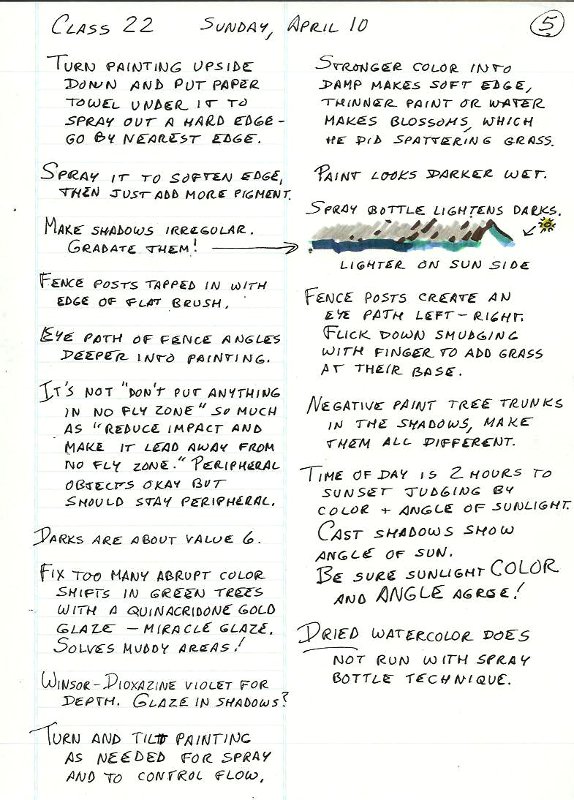 CLASS 22 SUNDAY, APRIL 10
5
TURN PAINTING UPSIDE
DOWN AND PUT PAPER
TOWEL UNDER IT TO
SPRAY OUT A HARD EDGE-
GO BY NEAREST EDGE.
SPRAY IT TO SOFTEN EDGE,
THEN JUST ADD MORE PIGMENT.
MAKE SHADOWS IRREGULAR.
GRADATE THEM!
FENCE POSTS TAPPED IN WITH
EDGE OF FLAT BRUSH.
EYE PATH OF FENCE ANGLES
DEEPER INTO PAINTING.
IT'S NOT "DON'T PUT ANYTHING
IN NO FLY ZONE" SO MUCH
AS "REDUCE IMPACT AND
MAKE IT LEAD AWAY FROM
NO FLY ZONE." PERIPHERAL
OBJECTS OKAY BUT
SHOULD STAY PERIPHERAL.
DARKS ARE ABOUT VALUE 6.
FIX TOO MANY ABRUPT COLOR
SHIFTS IN GREEN TREES
WITH A QUINACRIDONE GOLD
GLAZE - MIRACLE GLAZE.
SOLVES MUDDY AREAS!
WINSOR-DIOXAZINE VIOLET FOR
DEPTH. GLAZE IN SHADOWS?
TURN AND TILT PAINTING
AS NEEDED FOR SPRAY
AND TO CONTROL FLOW.
STRONGER COLOR INTO
DAMP MAKES SOFT EDGE,
THINNER PAINT OR WATER
MAKES BLOSSOMS, WHICH
HE DID SPATTERING GRASS.
PAINT LOOKS DARKER WET.
SPRAY BOTTLE LIGHTENS DARKS.
LIGHTER ON SUN SIDE
FENCE POSTS CREATE AN
EYE PATH LEFT-RIGHT.
FLICK DOWN SMUDGING
WITH FINGER TO ADD GRASS
AT THEIR BASE.
NEGATIVE PAINT TREE TRUNKS
IN THE SHADOWS, MAKE
THEM ALL DIFFERENT.
TIME OF DAY IS 2 HOURS TO
SUNSET JUDGING BY
COLOR + ANGLE OF SUNLIGHT.
CAST SHADOWS SHOW
ANGLE OF SUN.
BE SURE SUNLIGHT COLOR
AND ANGLE AGREE!
DRIED WATERCOLOR DOES
NOT RUN WITH SPRAY
BOTTLE TECHNIQUE.